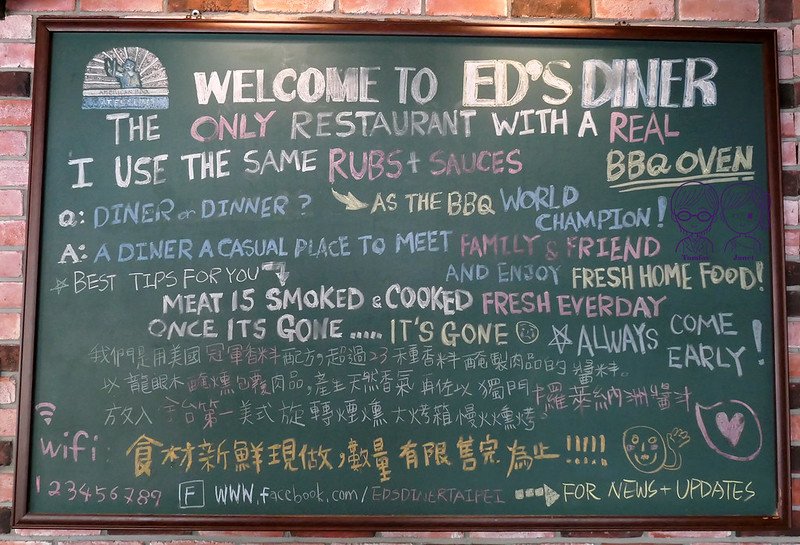 AMERICAN BBQ
WELCOME TO ED'S DINER
THE ONLY RESTAURANT WITH A REAL
BBQ OVEN
I USE THE SAME RUBS + SAUCES
AS THE BBQ WORLD CHAMPION!
Q: DINER or DINNER?
A: A DINER A CASUAL PLACE TO MEET FAMILY & FRIEND
AND ENJOY FRESH HOME FOOD!
BEST TIPS FOR YOU
MEAT IS SMOKED & COOKED FRESH EVERDAY
ONCE ITS GONE ..... IT'S GONE
ALWAYS COME EARLY!
我們是用美國冠軍香料配方,超過23種香料醃製肉品的醬料。
以龍眼木醃燻包覆肉品,產生天然香氣再佐以獨門卡羅萊納洲醬汁
放入全台第一美式旋轉煙燻大烤箱慢火燻烤。
wifi:
123456789
食材新鮮現做,數量有限售完為止!!!!!
f www.facebook.com/EDSDINERTAIPEI
FOR NEWS + UPDATES
Yumfay Janet